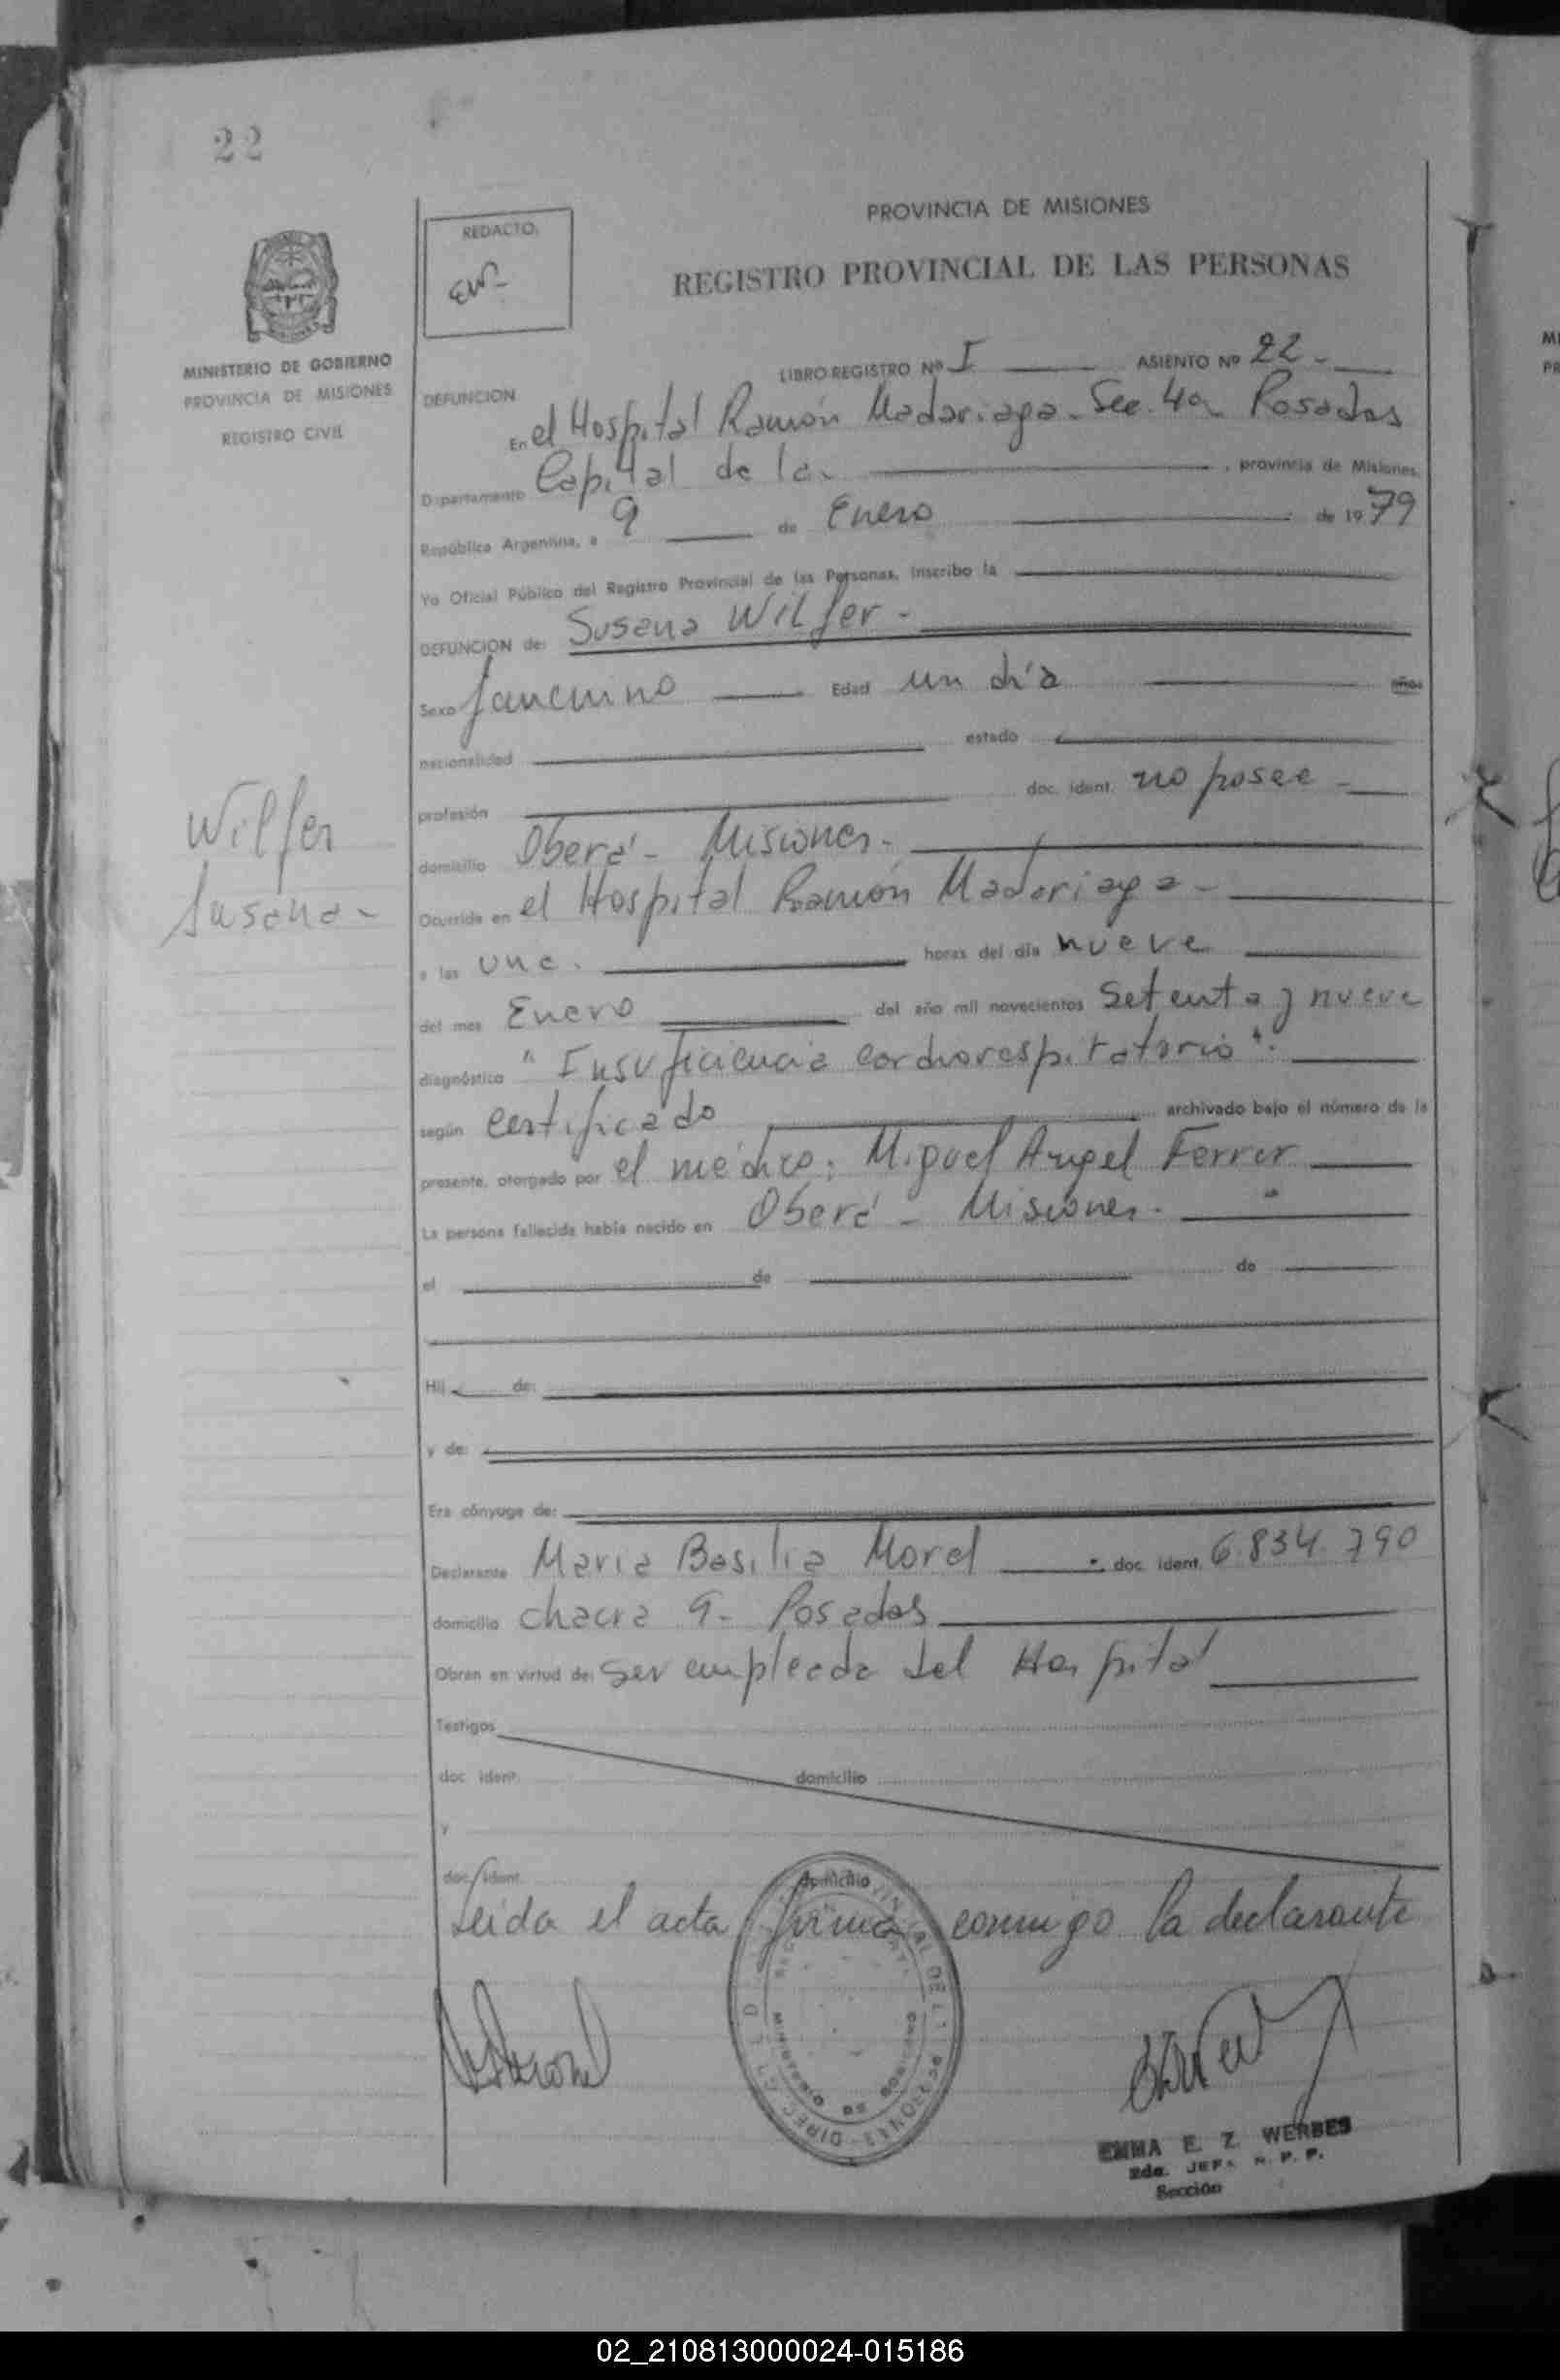 22
PROVINCIA DE MISIONES
REDACTO.
REGISTRO PROVINCIAL DE LAS PERSONAS
MINISTERIO DE GOBIERNO
PROVINCIA DE MISIONES
REGISTRO CIVIL
LIBRO REGISTRO Nº I ASIENTO Nº 22-
DEFUNCION
En el Hospital Ramón Madariaga - Sec. 4a Posadas
Departamento Capital de la , provincia de Misiones
República Argentina, a 9 de Enero de 1979
Yo Oficial Público del Registro Provincial de las Personas, inscribo la
DEFUNCION de: Susana Wilfer -
Sexo femenino Edad un día años
nacionalidad estado
profesión doc. ident. no posee -
Wilfer
Susana -
domicilio Oberá - Misiones -
Ocurrida en el Hospital Ramón Madariaga -
a las una. horas del día nueve
del mes Enero del año mil novecientos setenta y nueve
diagnóstico "Insuficiencia cardiorespiratorio".
según certificado archivado bajo el número de la
presente, otorgado por el médico: Miguel Angel Ferrer
La persona fallecida había nacido en Oberá - Misiones -
el de de
Hij de:
y de:
Era cónyuge de:
Declarante María Basilia Morel doc. ident. 6.834.790
domicilio chacra 9 - Posadas
Obran en virtud de: ser empleada del Hospital
Testigos
doc. ident. domicilio
y
doc. ident. domicilio
Leida el acta firma conmigo la declarante
MINISTERIO DE GOBIERNO
EMMA E. Z. WERBES
2da. JEFA R. P. P.
Sección
02_210813000024-015186